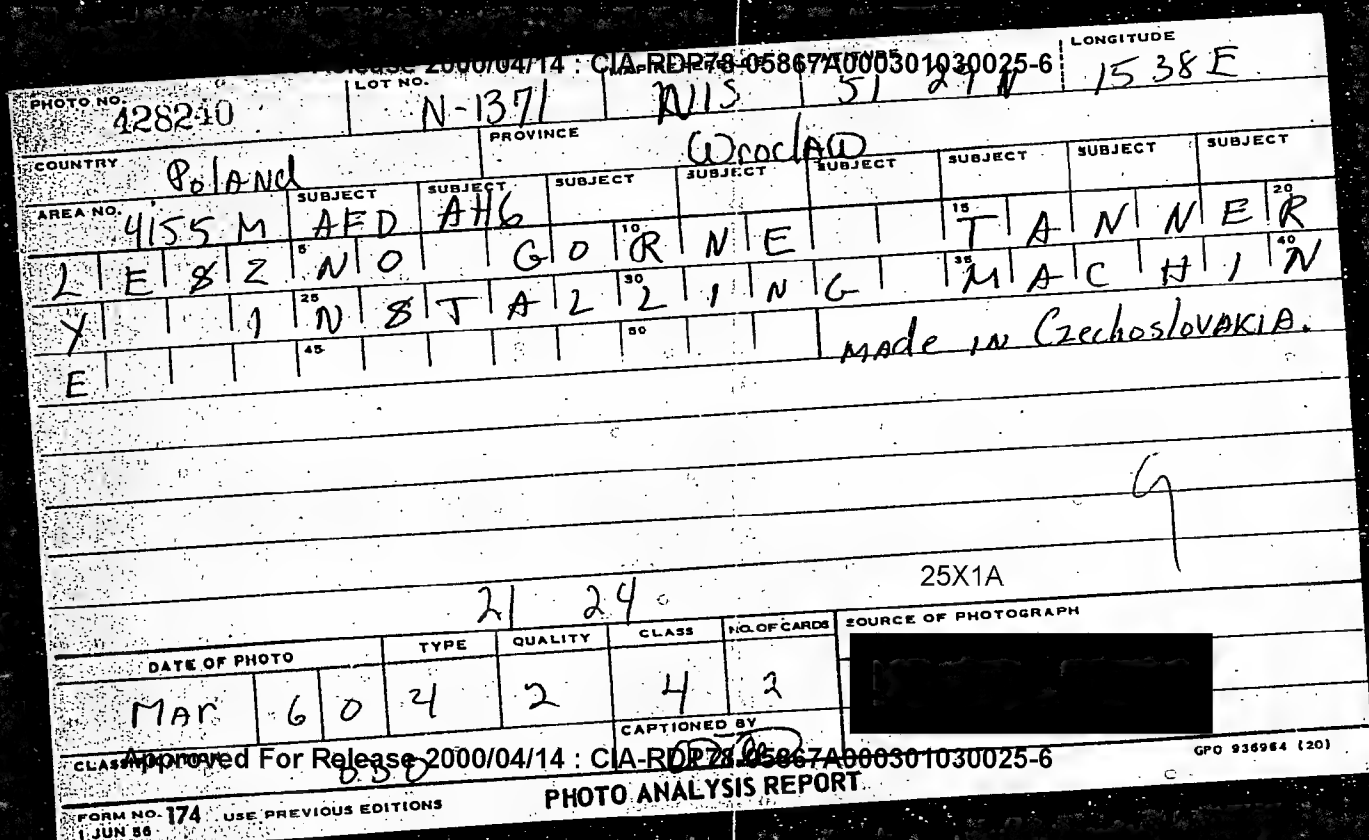 Release 2000/04/14 : CIA-RDP78-05867A000301030025-6
LONGITUDE
PHOTO NO. 428240 LOT NO. N-1371 NIS 51 29 N 15 38 E
COUNTRY Poland PROVINCE Wroclaw
AREA NO. 4155 M SUBJECT AFD SUBJECT AH6 SUBJECT SUBJECT SUBJECT SUBJECT SUBJECT SUBJECT
L E 8 Z 5 N O G O 10 R N E 15 T A N N E 20 R
Y 1 25 N 8 T A L 30 L I N G 35 M A C H I 40 N
E 45 50 made in Czechoslovakia.
25X1A
21 24
DATE OF PHOTO TYPE QUALITY CLASS NO. OF CARDS SOURCE OF PHOTOGRAPH
Mar 6 0 4 2 4 2
CAPTIONED BY
Approved For Release 2000/04/14 : CIA-RDP78-05867A000301030025-6
GPO 936964 (20)
FORM NO. 174 USE PREVIOUS EDITIONS PHOTO ANALYSIS REPORT
1 JUN 56